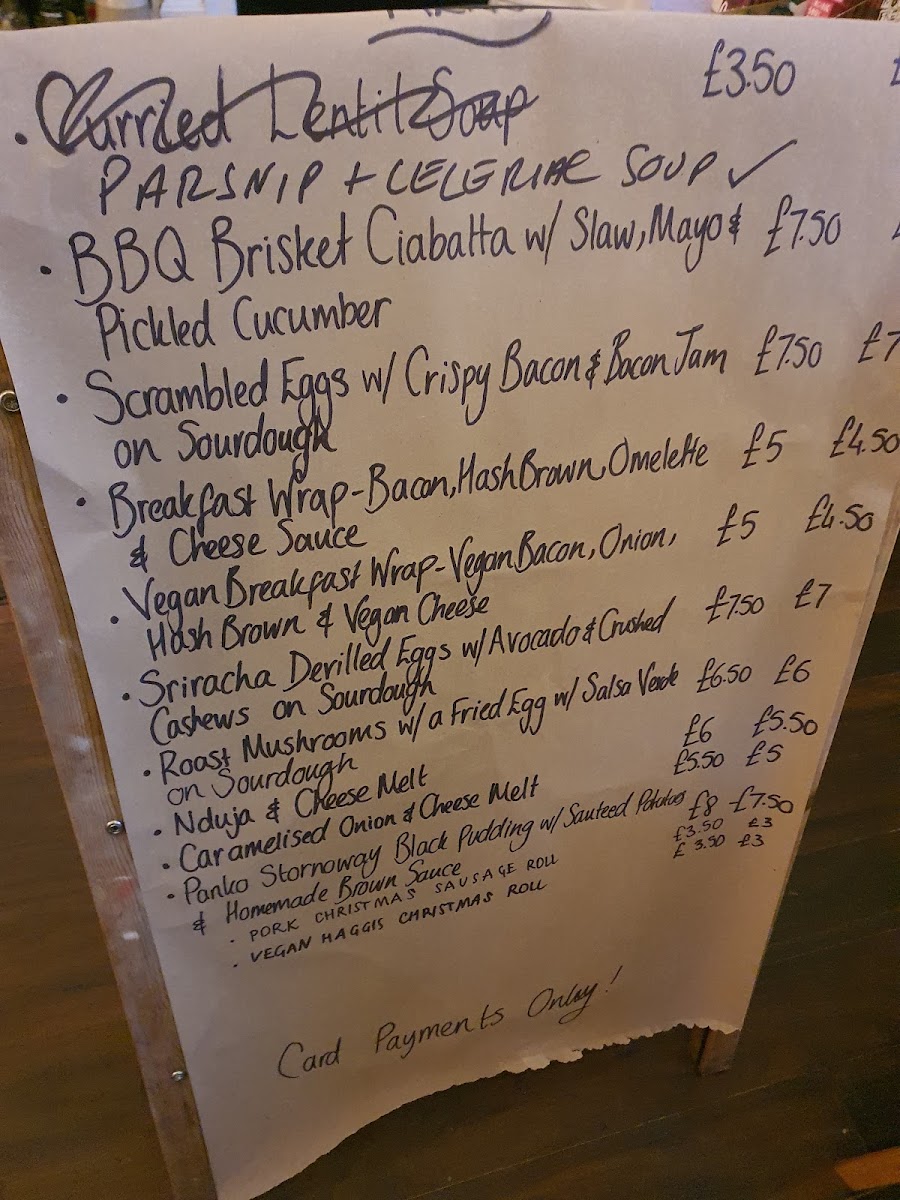 • Curried Lentil Soup £3.50 £
PARSNIP + CELERIAC SOUP ✓
• BBQ Brisket Ciabatta w/ Slaw, Mayo & £7.50
Pickled Cucumber
• Scrambled Eggs w/ Crispy Bacon & Bacon Jam £7.50 £7
on Sourdough
• Breakfast Wrap - Bacon, Hash Brown, Omelette £5 £4.50
& Cheese Sauce
• Vegan Breakfast Wrap - Vegan Bacon, Onion, £5 £4.50
Hash Brown & Vegan Cheese
• Sriracha Derilled Eggs w/ Avocado & Crushed £7.50 £7
Cashews on Sourdough
• Roast Mushrooms w/ a Fried Egg w/ Salsa Verde £6.50 £6
on Sourdough
• Nduja & Cheese Melt £6 £5.50
• Caramelised Onion & Cheese Melt £5.50 £5
• Panko Stornoway Black Pudding w/ Sauteed Potatoes £8 £7.50
& Homemade Brown Sauce
• PORK CHRISTMAS SAUSAGE ROLL £3.50 £3
• VEGAN HAGGIS CHRISTMAS ROLL £3.50 £3
Card Payments Only!